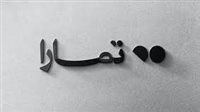 تمارا